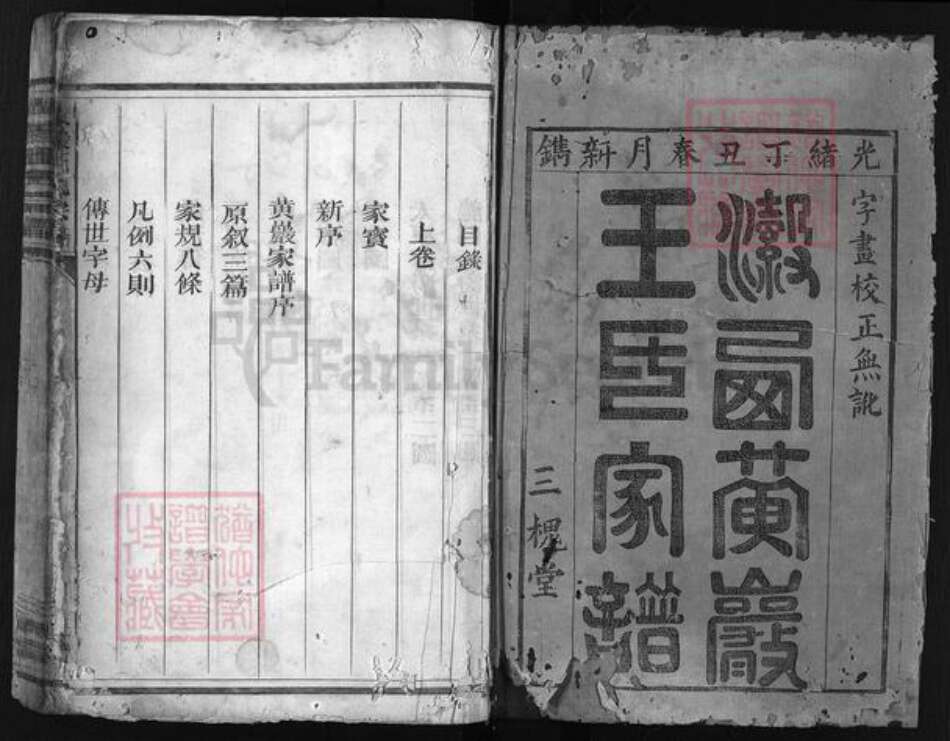 光緒丁丑春月新鐫
字畫校正無訛
黃巖
王氏家譜
三槐堂
目錄
上卷
家寶
新序
黄巖家譜序
原叙三篇
家規八條
凡例六則
傳世字母
FamilySearch